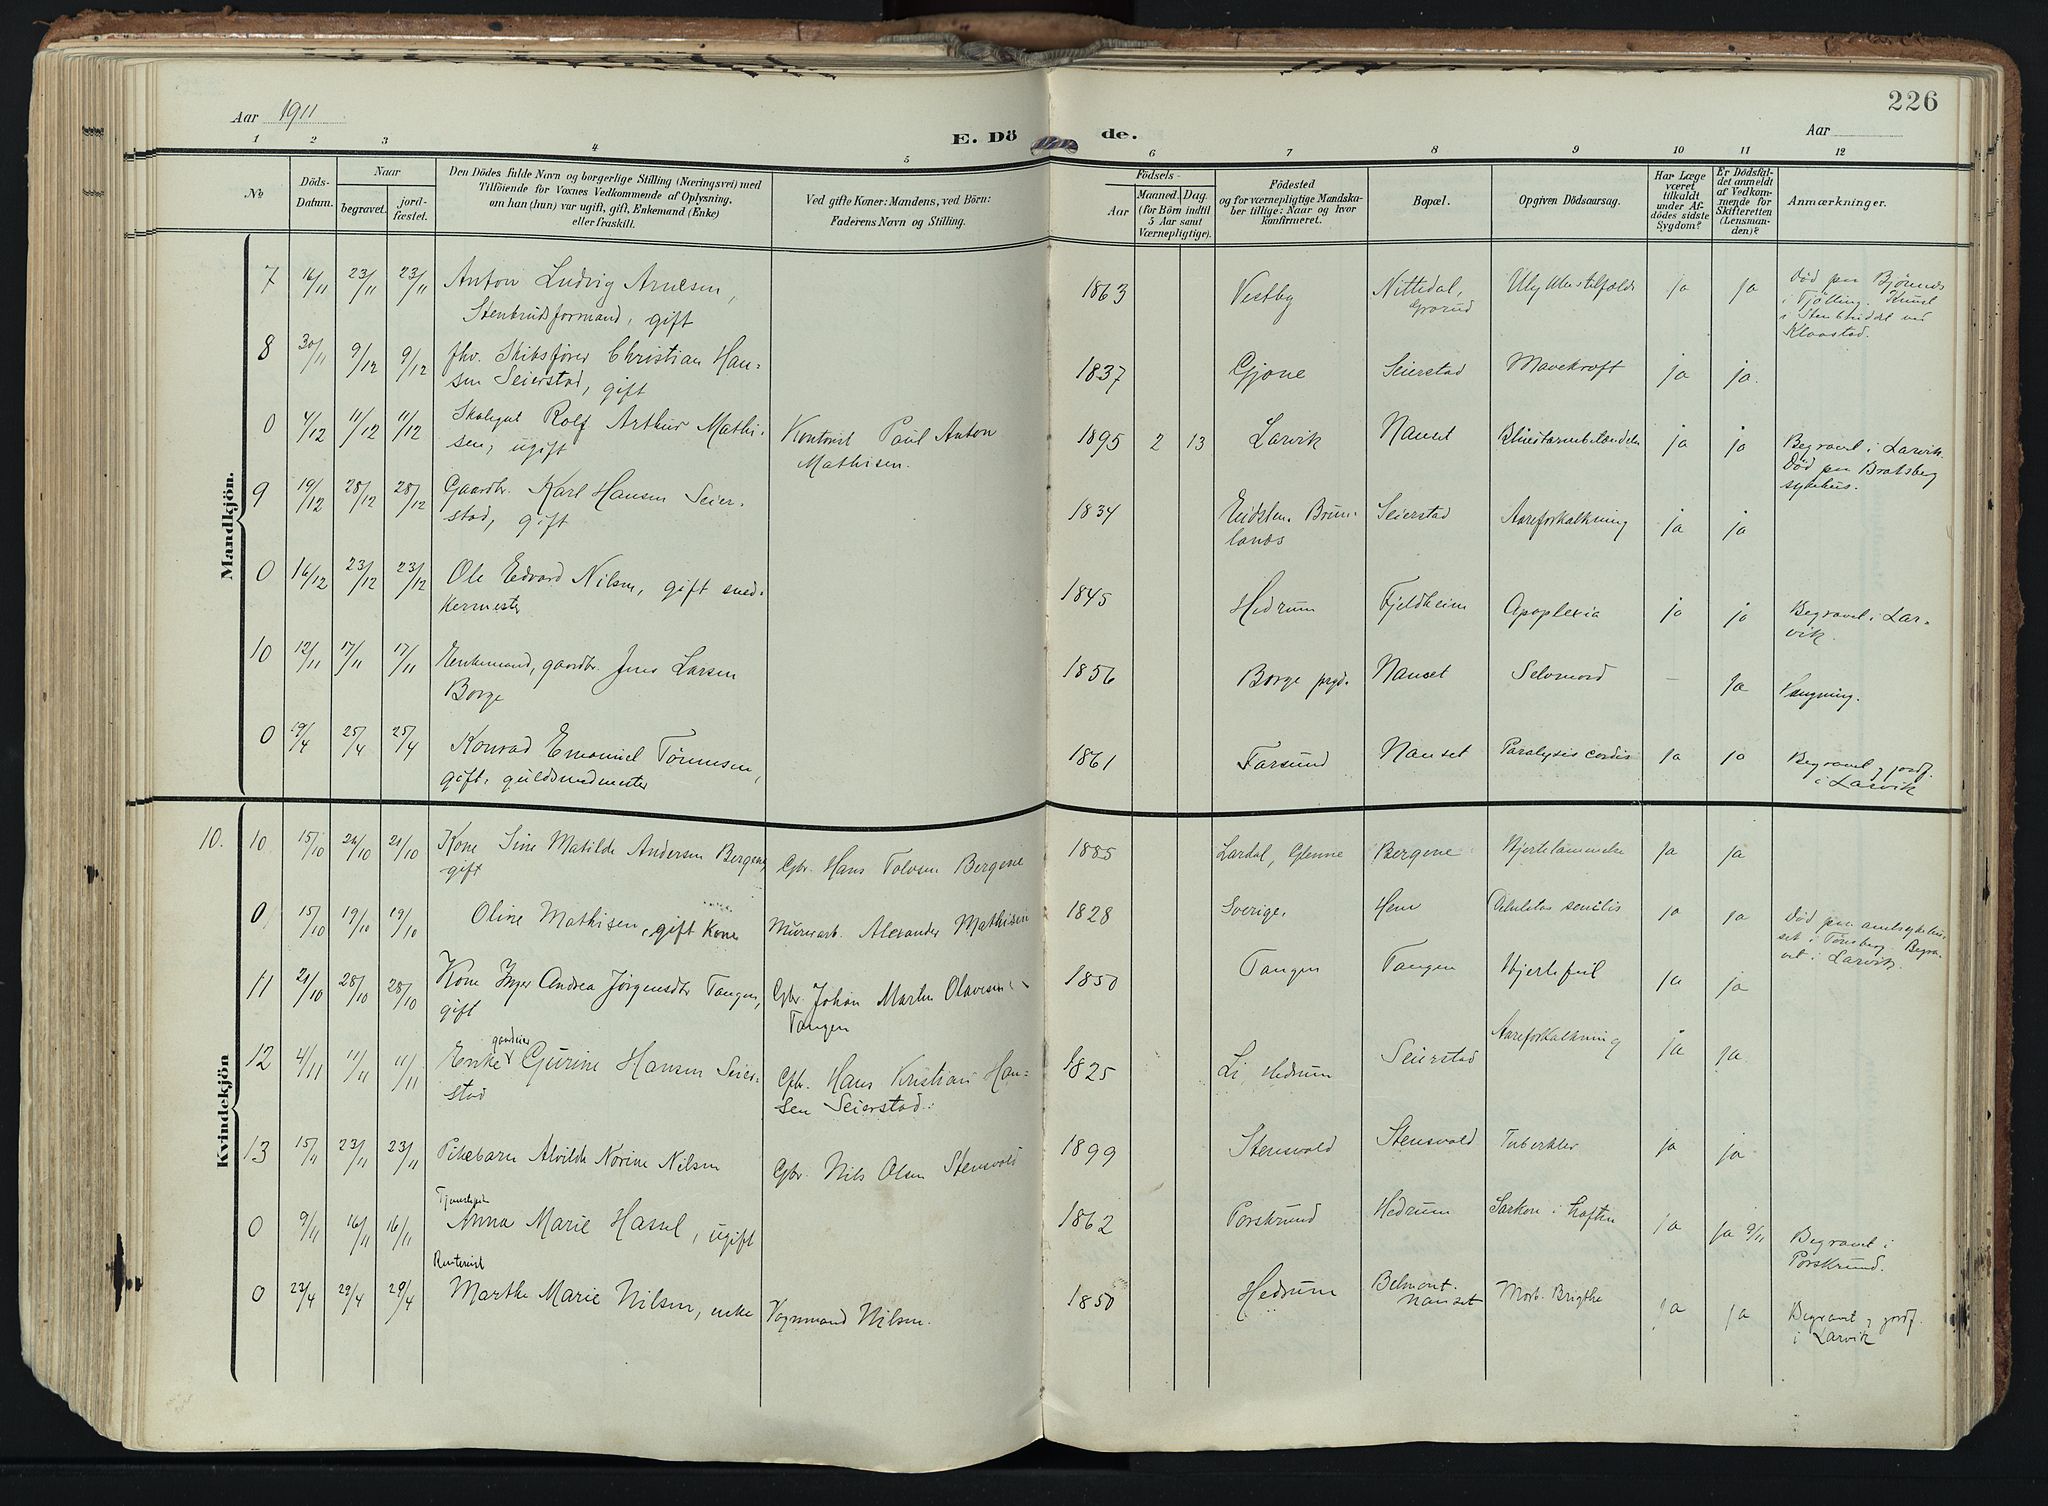 226
Aar 1911
E. Dö de.
Aar
1 2 3 4 5 6 7 8 9 10 11 12
No.
Döds-Datum.
Naar
begravet.
jord-fæstet.
Den Dödes fulde Navn og borgerlige Stilling (Næringsvei) med
Tilföiende for Voxnes Vedkommende af Oplysning,
om han (hun) var ugift, gift, Enkemand (Enke)
eller fraskilt.
Ved gifte Koner: Mandens, ved Börn:
Faderens Navn og Stilling.
Födsels-
Aar
Maaned. Dag.
(for Börn indtil
5 Aar samt
Værnepligtige).
Födested
og for værnepligtige Mandska-
ber tillige: Naar og hvor
konfirmeret.
Bopæl.
Opgiven Dödsaarsag.
Har Læge
været
tilkaldt
under Af-
dödes sidste
Sygdom?
Er Dödsfal-
det anmeldt
af Vedkom-
mende for
Skifteretten
(Lensman-
den)?
Anmærkninger.
Mandkjön.
7 16/11 23/11 23/11 Anton Ludvig Arnesen, 1863 Vestby Nittedal, Ulykkestilfælde ja ja Død paa Bjønnes
Stenbrudsformand, gift Grorud i Tjølling. Knust
i Stenbruddet ved
Klaastad.
8 30/11 9/12 9/12 fhv. Skibsfører Christian Han- 1837 Gjone Seierstad Mavekræft ja ja.
sen Seierstad, gift
0 4/12 11/12 11/12 Skolegut Rolf Arthur Mathi- Kontorist Paul Anton 1895 2 13 Larvik Nanset ja ja Begravet i Larvik.
sen, ugift Mathisen. Død paa Bratsberg
sykehus.
9 19/12 28/12 28/12 Gaardbr. Karl Hansen Seier- 1834 Eidsten. Brun- Seierstad Aareforkalkning ja ja
stad, gift lanæs
0 16/12 23/12 23/12 Ole Edvard Nilsen, gift sned- 1845 Hedrum Fjeldheim Apoplexia ja ja Begravet i Lar-
kermester vik.
10 12/11 17/11 17/11 Enkemand, gaardbr. Jens Larsen 1856 Borge prgd. Nanset Selvmord - ja Hængning.
Borge
0 19/4 25/4 25/4 Konrad Emanuel Tønnesen, 1861 Farsund Nanset Paralysis cordis ja ja Begravet og jordf.
gift, guldsmedmester i Larvik
Kvindekjön
10. 10 15/10 21/10 21/10 Kone Sine Matilde Andersen Bergene, Gbr. Hans Tolvsen Bergene 1885 Lardal, Glenne Bergene Hjertelammelse ja ja
gift
0 15/10 19/10 19/10 Oline Mathisen, gift Kone Murerarb. Alexander Mathisen 1828 Sverige. Hem Debilitas senilis ja ja Død paa amtsykehu-
set i Tønsberg. Begra-
vet i Larvik.
11 21/10 28/10 28/10 Kone Inger Andrea Jørgensdtr Tangen, Gbr. Johan Martin Olavesen 1850 Tangen Tangen Hjertefeil ja ja
gift Tangen
12 4/11 11/11 11/11 Enke gaardeier Gurine Hansen Seier- Gbr. Hans Kristian Han- 1825 Li, Hedrum Seierstad Aareforkalkning ja ja.
stad sen Seierstad.
13 15/11 23/11 23/11 Pikebarn Alvilde Norine Nilsen Gbr. Nils Olsen Stensvold 1899 Stensvold Stensvold Tuberkler ja ja
Tjenestepike
0 9/11 16/11 16/11 Anna Marie Hassel, ugift 1862 Porskrund Hedrum Sarkom i hoften ja ja 9/11 Begravet i
Porskrund.
Rentenist
0 23/4 29/4 29/4 Marthe Marie Nilsen, enke Vognmand Nilsen. 1850 Hedrum Belmont. Morb. Brigthi ja ja Begravet og jordf.
Nanset i Larvik